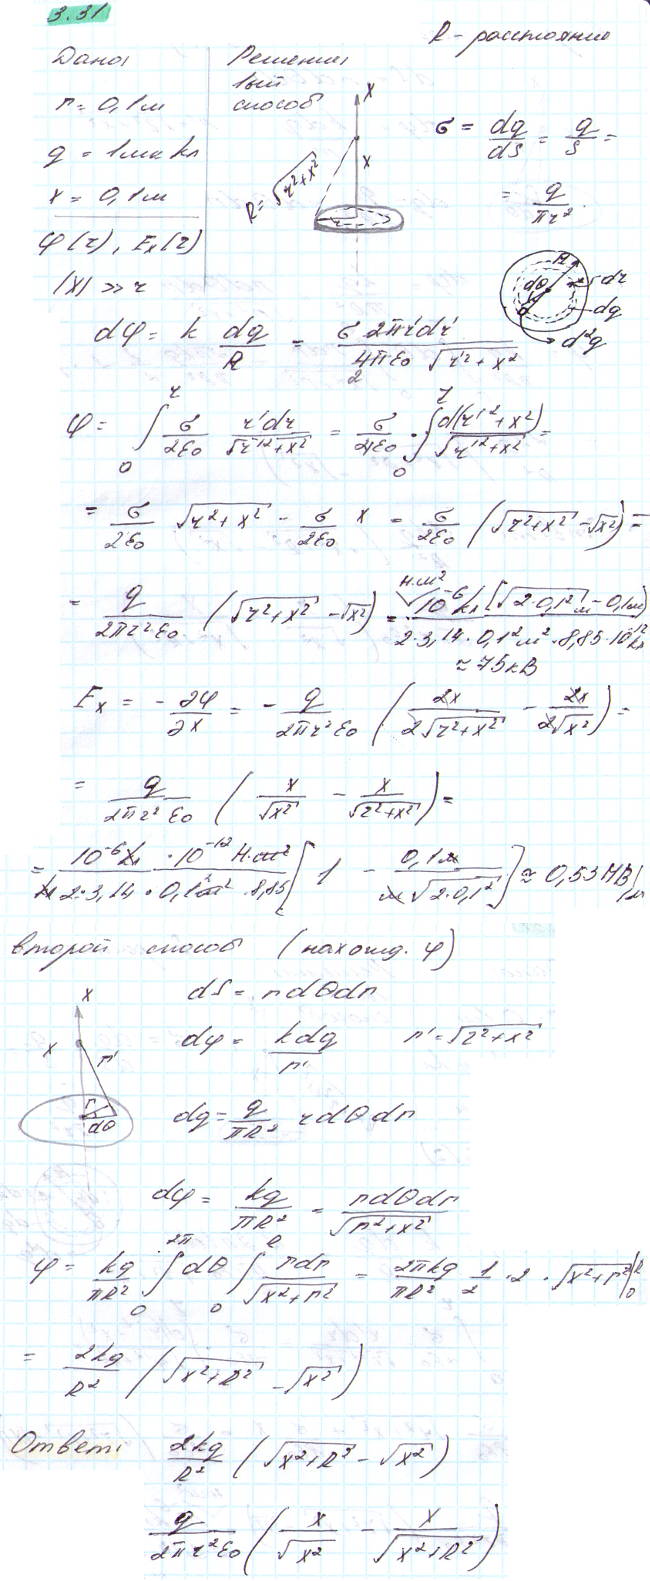 3.31
R - расстояние
Дано: Решение
1ый способ
r = 0,1 м
q = 1 мкКл
x = 0,1 м
φ(r), E_x(r)
|x| >> r
x
x
R = √(r² + x²)
σ = dq/dS = q/S =
= q/(πr²)
dθ dr
dq
d²q
dφ = k dq/R = σ 2πr'dr' / (4πε₀ √(r'² + x²))
2
φ = ∫₀^r σ/(2ε₀) r'dr/√(r'² + x²) = σ/(4ε₀) · ∫₀^r d(r'² + x²)/√(r'² + x²) =
= σ/(2ε₀) √(r² + x²) - σ/(2ε₀) x = σ/(2ε₀) (√(r² + x²) - √x²) =
= q/(2πr²ε₀) (√(r² + x²) - √x²) = Н·м² 10⁻⁶ Кл [√(2·0,1²) м - 0,1 м] / (2·3,14·0,1² м²·8,85·10⁻¹² Кл)
≈ 75 кВ
E_x = - ∂φ/∂x = - q/(2πr²ε₀) (2x/(2√(r² + x²)) - 2x/(2√x²)) =
= q/(2πr²ε₀) (x/√x² - x/√(r² + x²)) =
= 10⁻⁶ Кл · 10⁻¹² Н·м² / (Кл 2·3,14 · 0,1² м² · 8,85) [1 - 0,1 м/(м √(2·0,1²))] ≈ 0,53 МВ/м
второй способ (нахожд. φ)
dS = r dθ dr
x
x
r'
r
dθ
dφ = k dq/r' r' = √(r² + x²)
dq = q/(πR²) r dθ dr
dφ = kq/(πR²) = r dθ dr/√(r² + x²)
φ = kq/(πR²) ∫₀^2π dθ ∫₀^R r dr/√(x² + r²) = 2πkq/(πR²) 1/2 · 2 · √(x² + r²) |₀^R
= 2kq/R² (√(x² + R²) - √x²)
Ответ: 2kq/R² (√(x² + R²) - √x²)
q/(2πr²ε₀) (x/√x² - x/√(x² + R²))